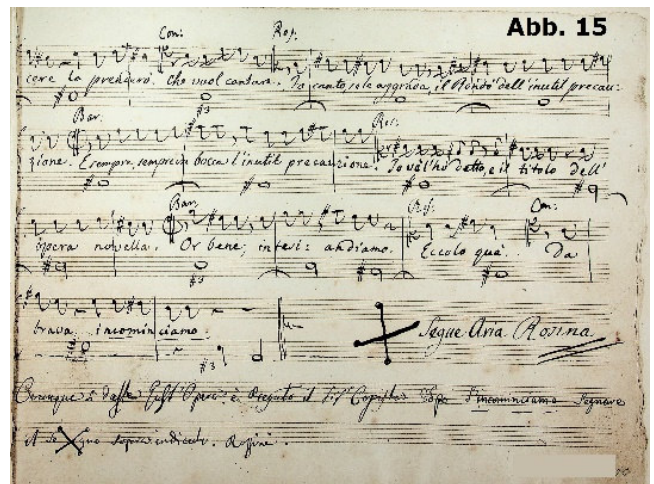 Abb. 15
Con: Ros:
cere la prenderò. Che vuol cantare. Io canto, se le aggrada, il Rondò dell'inutil precau:
Bar. Ros:
zione. E sempre, sempre in bocca l'inutil precauzione. Io vel'ho detto, è il titolo dell'
Bar. Ros: Con:
opera novella. Or bene, intesi: andiamo. Eccolo quà. Da
brava incominciamo.
Segue Aria Rosina
Ovunque si dasse quest'Opera è pregato il Sig.r Copista dopo l'incominciamo segnare
il Se gno sopra indicato. Rossini.